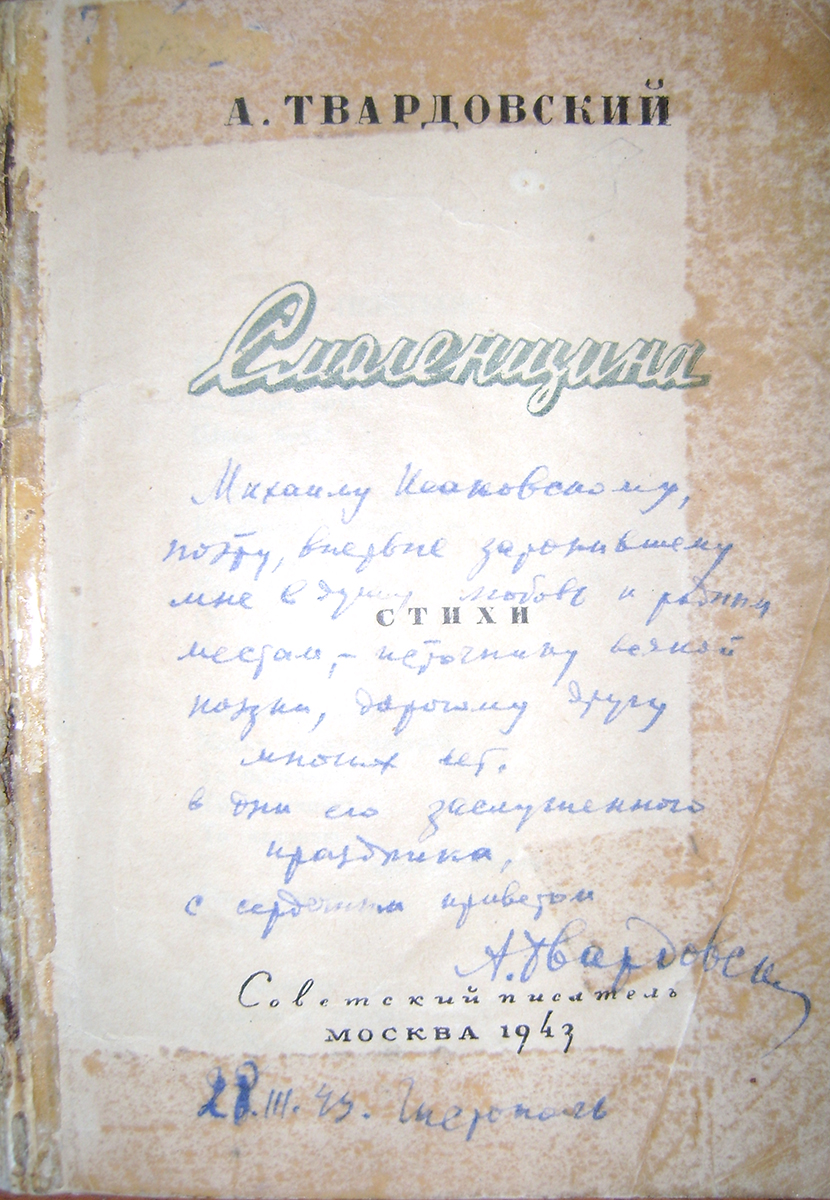 А. ТВАРДОВСКИЙ
Смоленщина
Михаилу Исаковскому,
поэту, впервые заронившему
мне в душу любовь к родным
СТИХИ
местам, – источнику всякой
поэзии, дорогому другу
многих лет.
в дни его заслуженного
праздника,
с сердечным приветом
А. Твардовский
Советский писатель
МОСКВА 1943
28.III.43. Чистополь